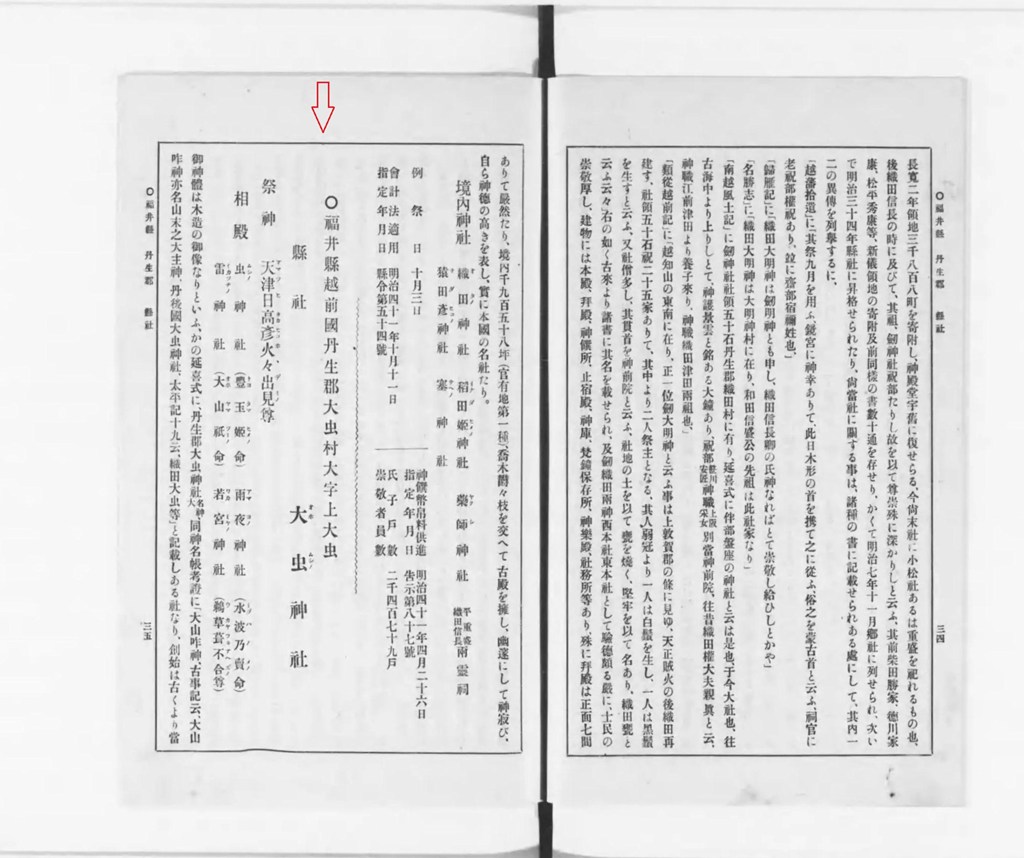 ○福井縣 丹生郡 縣社
三四
長寬二年領地三千八百八町を寄附し、神殿堂宇舊に復せらる、今尙末社に小松社あるは重盛を祀れるもの也、
後織田信長の時に及びて、其祖、劔神社祝部たりし故を以て尊崇殊に深かりしと云ふ、其前柴田勝家、德川家
康、松平秀康等、新儀領地の寄附及前同樣の書數十通を存せり、かくて明治七年十一月鄕社に列せられ、次い
で明治三十四年縣社に昇格せられたり、尙當社に關する事は、諸種の書に記載せられある處にして、其內一
二の異傳を列擧するに、
「越藩拾遺」に、其祭九月を用ふ、鏡宮に神幸ありて、此日木形の首を携て之に從ふ、俗之を蒙古首と云ふ、祠官に
老祝部權祝あり、竝に齋部宿禰姓也、」
「歸雁記」に「織田大明神は劔明神とも申し、織田信長卿の氏神なればとて崇敬し給ひしとかや」
「名勝志」に「織田大明神は大明神村に在り、和田信盛公の先祖は此社家なり」
「南越風土記」に劔神社社領五十石丹生郡織田村に有り、延喜式に伴部盤座の神社と云は是也、于今大社也、往
古海中より上りしとて、神護景雲と銘ある大鐘あり、祝部 神職 別當神前院、往昔織田權大夫親眞と云、
神職江前津田より養子來り、神職織田津田兩祖也、」
「類從越前記」に「越知山の東南に在り、正一位劔大明神と云ふ事は上敦賀郡の條に見ゆ、天正賊火の後織田再
建す、社領五十石祝二十五家ありて、其中より二人祭主となる、其人弱冠より一人は白髮を生し、一人は黑髮
を生すと云ふ、又社僧多し、其貫首を神前院と云ふ、社地の土を以て甕を燒く、堅牢を以て名あり、織田甕と
云ふ云々、右の如く古來より諸書に其名を載せられ、及劔織田兩神西本社東本社として驗德顯る嚴に、士民の
崇敬厚し、建物には本殿、拜殿、神饌所、止宿殿、神庫、梵鐘保存所、神樂殿、社務所等あり、殊に拜殿は正面七間
ありて嚴然たり、境內千九百五十八坪(官有地第一種)喬木欝々枝を交へて古殿を擁し、幽邃にして神寂び、
自ら神德の高きを表し、實に本國の名社たり。
境內神社 織田神社 稻田姬神社 藥師神社 平重盛 織田信長 兩靈祠
猿田彥神社 塞神社
例祭日 十月三日
會計法適用 明治四十一年十月十一日
指定年月日 縣令第五十四號
神饌幣帛料供進 明治四十一年四月二十六日
指定年月日 告示第八十七號
氏子戶數
崇敬者員數 二千四百七十九戶
○福井縣越前國丹生郡大虫村大字上大虫
縣社 大虫神社
祭神 天津日高彥火々出見尊
相殿 虫神社(豐玉姬命) 雨夜神社(水波乃賣命)
雷神社(大山祇命) 若宮神社(鵜草葺不合尊)
御神體は木造の御像なりといふ、かの延喜式に、「丹生郡大虫神社名神大」同神名帳考證に、「大山咋神、古事記云、大山
咋神亦名山末之大主神、丹後國大虫神社、太平記十九云、織田大虫等」と記載しある社なり、創始は古くより當
○福井縣 丹生郡 縣社
三五